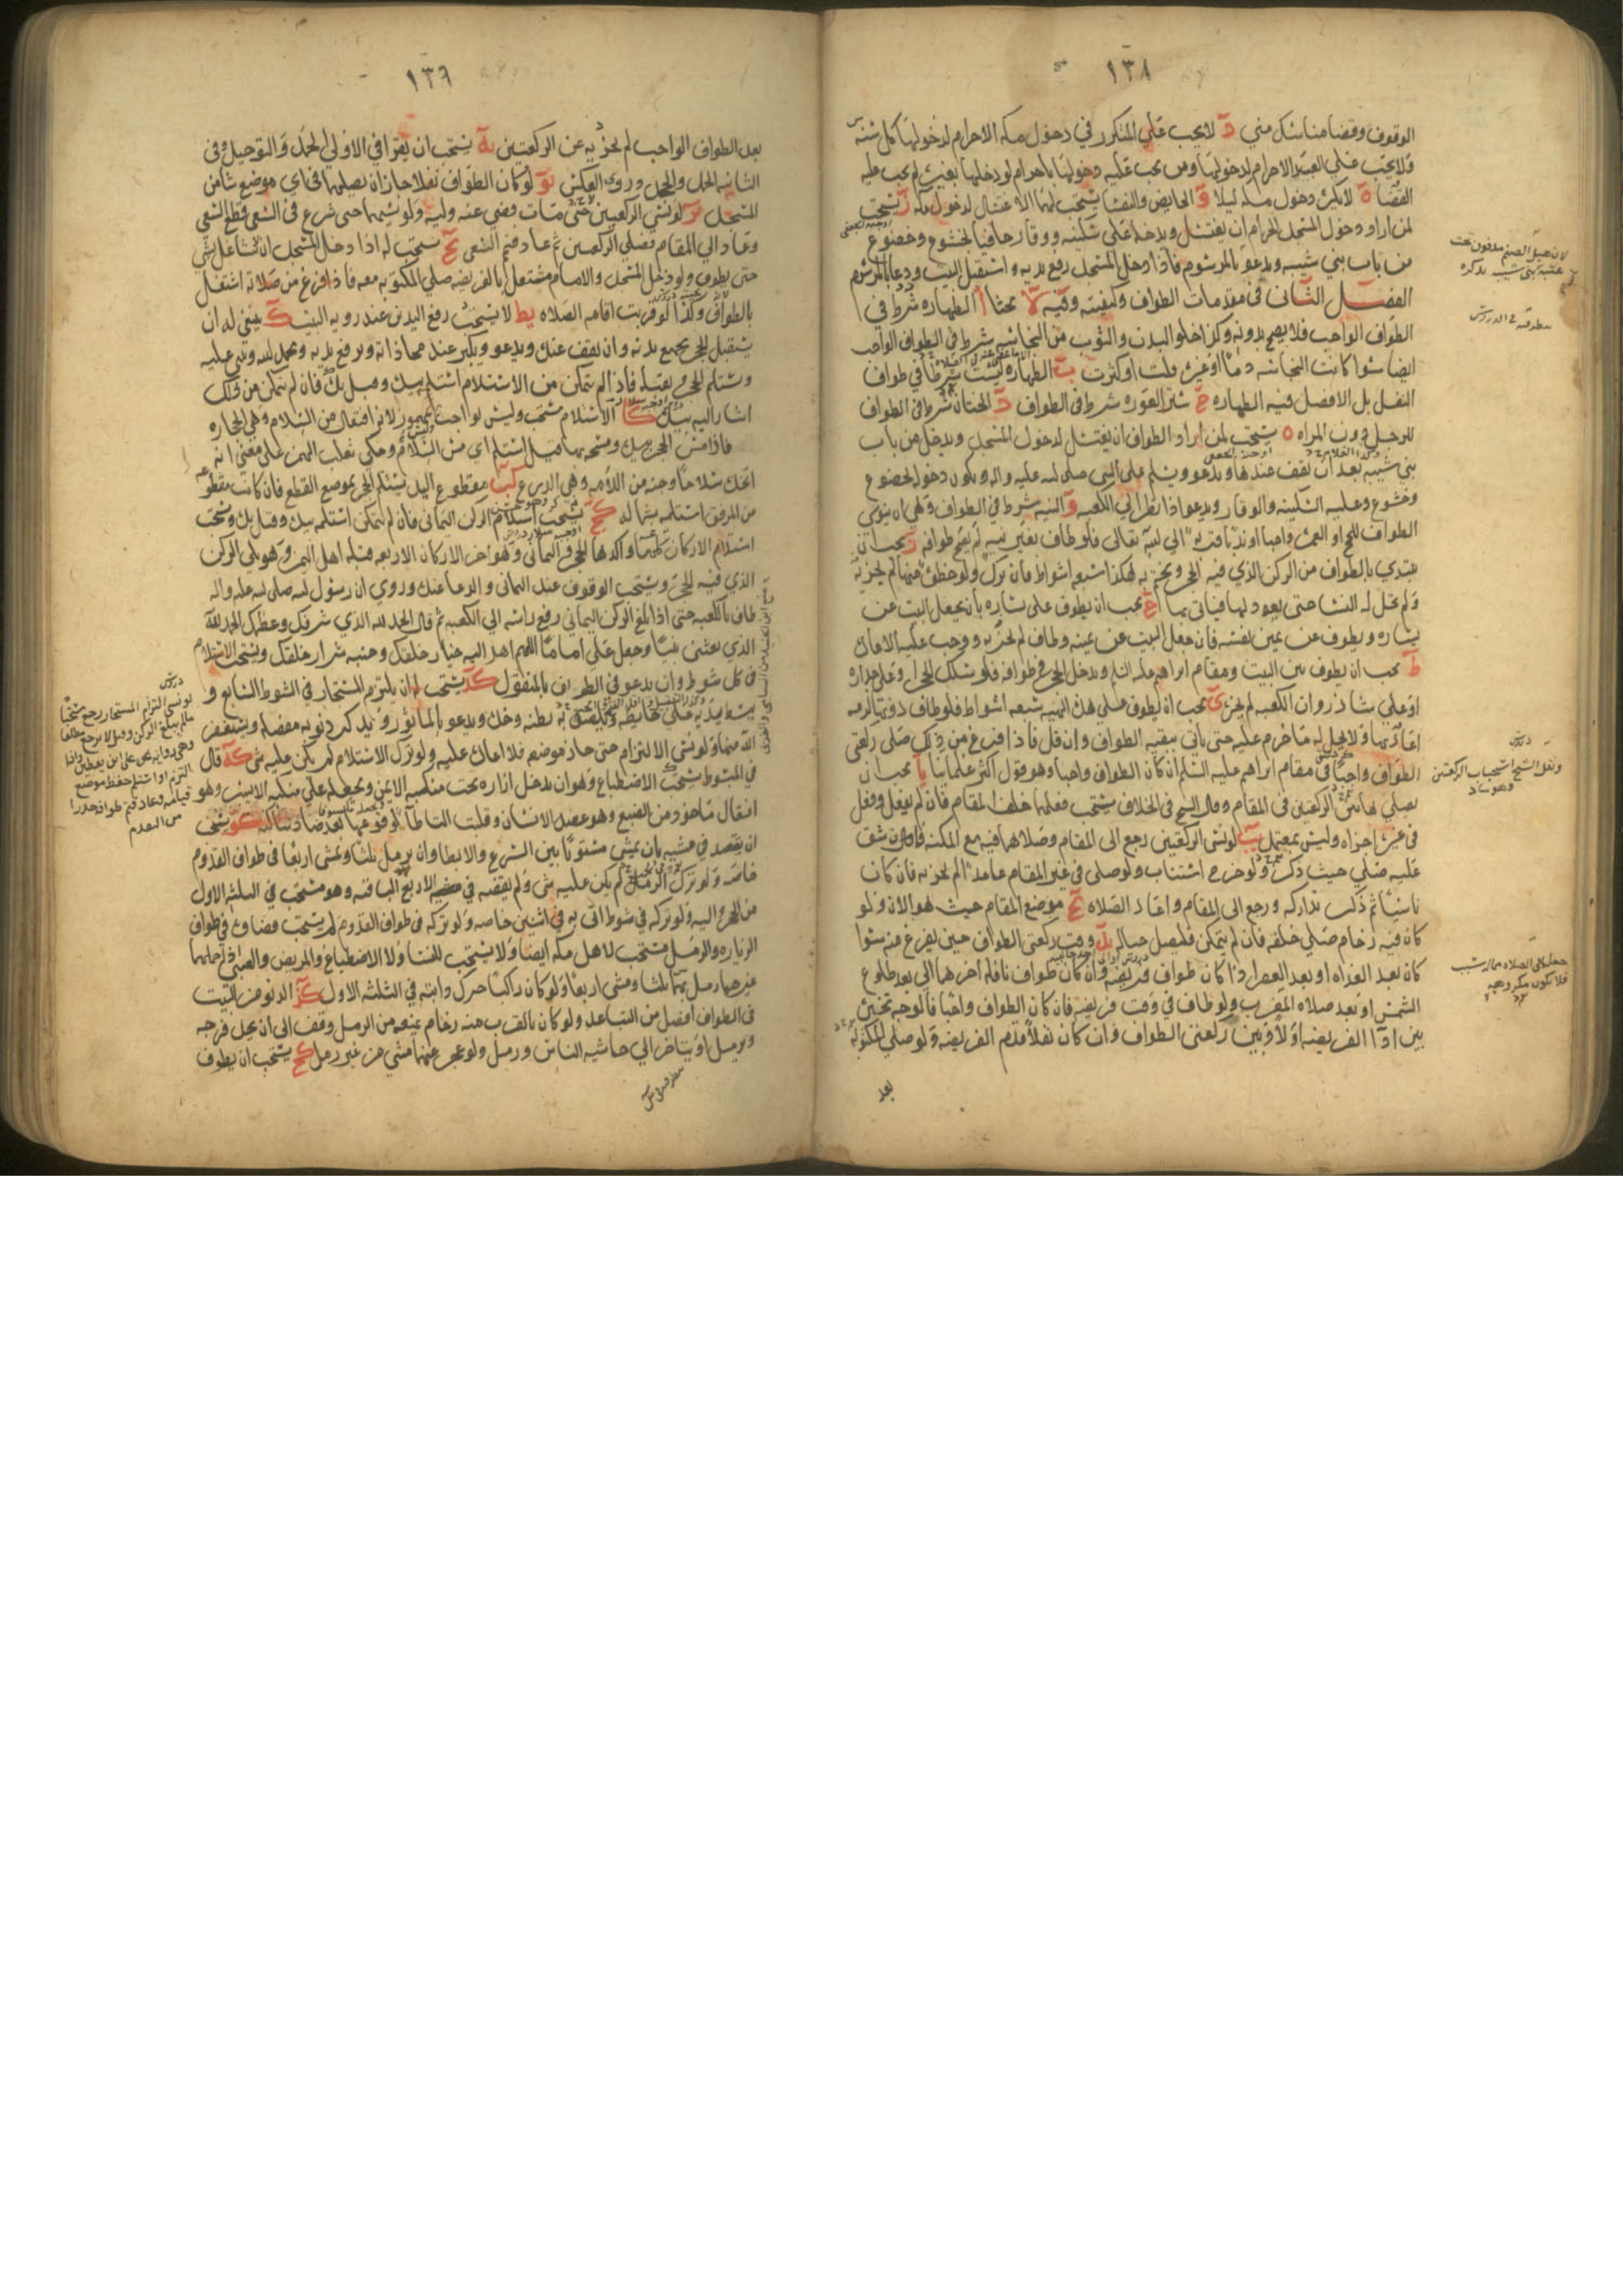 ١٣٨
الوقوف وقضا مناسك منى د لا يجب على المتكرر في دخول مكة الاحرام لدخولها كل سنة
ولا يجب على العبد الاحرام لدخولها ومن يجب عليه دخولها باحرام لو دخلها بغيره لم يجب عليه
القضا ه لا يكره دخول مكة ليلا و الحايض والنفسا يستحب لهما الاغتسال لدخول مكة ز يستحب
لمن اراد دخول المسجد الحرام ان يغتسل ويدخله على سكينة ووقار حافيا بخشوع وخضوع
من باب بني شيبة ويدعو بالمرسوم فاذا دخل المسجد رفع يديه واستقبل البيت ودعا بالمرسوم
الفصل الثاني في مقدمات الطواف وكيفيته وفيه لا بحثا ا الطهارة شرط في
الطواف الواجب فلا يصح بدونه وكذا خلو البدن والثوب من النجاسة شرط في الطواف الواجب
ايضا سوا كانت النجاسة دما او غيره قلت او كثرت ب الطهارة ليست شرطا في طواف
النفل بل الافضل فيه الطهارة ج ستر العورة شرط في الطواف د الختان شرط في الطواف
للرجل دون المراة ه يستحب لمن اراد الطواف ان يغتسل لدخول المسجد ويدخل من باب
بني شيبة بعد ان يقف عندها ويدعو ويسلم على النبي صلى الله عليه واله ويكون دخوله بخضوع
وخشوع وعليه السكينة والوقار ويدعو اذا نظر الى الكعبة و النية شرط في الطواف وهي ان ينوي
الطواف للحج او العمرة واجبا او ندبا قربة الى الله تعالى فلو طاف بغير نية لم يصح طوافه ز يجب ان
يبتدي بالطواف من الركن الذي فيه الحجر ويختم به هكذا سبعة اشواط فان ترك ولو خطوة منها لم يجزيه
ولم تحل له النسا حتى يعود لها فياتي بها ح يجب ان يطوف على يساره بان يجعل البيت عن
يساره ويطوف عن يمين نفسه فان جعل البيت عن يمينه وطاف لم يجزه ووجب عليه الاعادة
ط يجب ان يطوف بين البيت ومقام ابراهيم عليه السلم ويدخل الحجر في طوافه فلو سلك الحجر او على جداره
او على شاذروان الكعبة لم يجز ي يجب ان يطوف على هذه الهيئة سبعة اشواط فلو طاف دونها لزمه
اعادتها ولا يحل له ما حرم عليه حتى ياتي ببقية الطواف وان قل فاذا فرغ من ذلك صلى ركعتي
الطواف واجبا في مقام ابراهيم عليه السلم ان كان الطواف واجبا وهو قول اكثر علمائنا يا يجب ان
يصلي هاتين الركعتين في المقام وقال الشيخ في الخلاف يستحب فعلهما خلف المقام فان لم يفعل وفعل
في غيره اجزاه وليس بمعتمد يب لو نسي الركعتين رجع الى المقام وصلاهما فيه مع المكنة فان شق
عليه صلى حيث ذكر ولو خرج استناب ولو صلى في غير المقام عامدا لم يجزيه فان كان
ناسيا ثم ذكر تداركه ورجع الى المقام واعاد الصلاة يج موضع المقام حيث هو الان ولو
كان فيه زحام صلى خلفه فان لم يتمكن فليصل حياله يد وقت ركعتي الطواف حين يفرغ منه سوا
كان بعد الغداة او بعد العصر اذا كان طواف فريضة وان كان طواف نافلة اخرهما الى بعد طلوع
الشمس او بعد صلاة المغرب ولو طاف في وقت فريضة فان كان الطواف واجبا فالوجه تخيره
بين ادا الفريضة اولا وبين ركعتي الطواف وان كان نفلا قدم الفريضة ولو صلى المكتوبة
بعد
لان هبل الصنم مدفون تحت
عتبة بني شيبة
ونقل الشيخ استحباب الركعتين
فلا تكون مكروهة
١٣٩
بعد الطواف الواجب لم يجزيه عن الركعتين يه يستحب ان يقرا في الاولى الحمد والتوحيد وفي
الثانية الحمد والجحد وروي العكس يو لو كان الطواف نفلا جاز ان يصليهما في اي موضع شا من
المسجد يز لو نسي الركعتين حتى مات قضى عنه وليه ولو نسيهما حتى شرع في السعي قطع السعي
وعاد الى المقام فصلى الركعتين ثم عاد فتمم السعي يح يستحب له اذا دخل المسجد ان لا يتشاغل بشي
حتى يطوف ولو دخل المسجد والامام مشتغل بالفريضة صلى المكتوبة معه فاذا فرغ من صلاته اشتغل
بالطواف وكذا لو قربت اقامة الصلاة يط لا يستحب رفع اليدين عند روية البيت ك ينبغي له ان
يستقبل الحجر بجميع بدنه وان يقف عنده ويدعو ويكبر عند محاذاته ويرفع يديه ويحمد الله ويثني عليه
ويستلم الحجر ويقبله فاذا لم يتمكن من الاستلام استلمه بيده وقبل يده فان لم يتمكن من ذلك
اشار اليه بيده كا الاستلام مستحب وليس بواجب مهموز لانه افتعال من السلام وهي الحجارة
فاذا مس الحجر بيده ومسحه بها قيل استلم اي مس السلام وحكى ثعلب الهمز على معنى انه
اتخذه سلاحا وجنة من اللأمة وهي الدرع كب مقطوع اليد يستلم الحجر بموضع القطع فان كانت مقطوعة
من المرفق استلمه بشماله كج يستحب استلام الركن اليماني فان لم يتمكن استلمه بيده وقبل يده ويستحب
استلام الاركان كلها واكدها الحجر واليماني وهو اخر الاركان الاربعة قبلة اهل اليمن وهو يلي الركن
الذي فيه الحجر ويستحب الوقوف عند اليماني والدعا عنده وروي ان رسول الله صلى الله عليه واله
طاف بالكعبة حتى اذا بلغ الركن اليماني رفع راسه الى الكعبة ثم قال الحمد لله الذي شرفك وعظمك الحمد لله
الذي بعثني نبيا وجعل عليا اماما اللهم اهد اليه خيار خلقك وجنبه شرار خلقك ويستحب الاستلام
في كل شوط وان يدعو في الطواف بالمنقول كد يستحب له ان يلتزم المستجار في الشوط السابع و
يبسط يديه على حايطه ويلصق به بطنه وخده ويدعو بالماثور ويذكر ذنوبه مفصلة ويستغفر
الله منها ولو نسي الالتزام حتى جاز موضعه فلا اعادة عليه ولو ترك الاستلام لم يكن عليه شي كه قال
في المبسوط يستحب الاضطباع وهو ان يدخل ازاره تحت منكبه الايمن ويجعله على منكبه الايسر وهو
افتعال ماخوذ من الضبع وهو عضد الانسان وقلبت التا طا لوقوعها بعد ضاد ساكنة كو يستحب
ان يقصد في مشيه بان يمشي مستويا بين السرع والابطا وان يرمل ثلثا ويمشي اربعا في طواف القدوم
خاصة ولو ترك الرمل لم يكن عليه شي ولم يقضه في الاربعة الباقية وهو مستحب في الثلثة الاول
من الحجر واليه ولو تركه في شوط اتى به في اثنين خاصة ولو تركه في طواف القدوم لم يستحب قضاوه في طواف
الزيارة والرمل مستحب لاهل مكة ايضا ولا يستحب للنسا ولا الاضطباع والمريض والصبي اذا حملهما
غيرهما رمل بهما ثلثا ومشى اربعا ولو كان راكبا حرك دابته في الثلثة الاول كز الدنو من البيت
في الطواف افضل من التباعد ولو كان بالقرب منه زحام يمنعه من الرمل وقف الى ان يجد فرجة
ويرمل او يتاخر الى حاشية الناس ورمل ولو عجز عنهما مشى من غير رمل كح يستحب ان يطوف
لو نسي التزام المستجار رجع مستحبا
ما لم يبلغ الركن وقيل لا يرجع مطلقا
وهي رواية على بن يقطين واذا
التزم او استلم حفظ موضع
قيامه وعاد فتمم طوافه حذرا
من التقدم